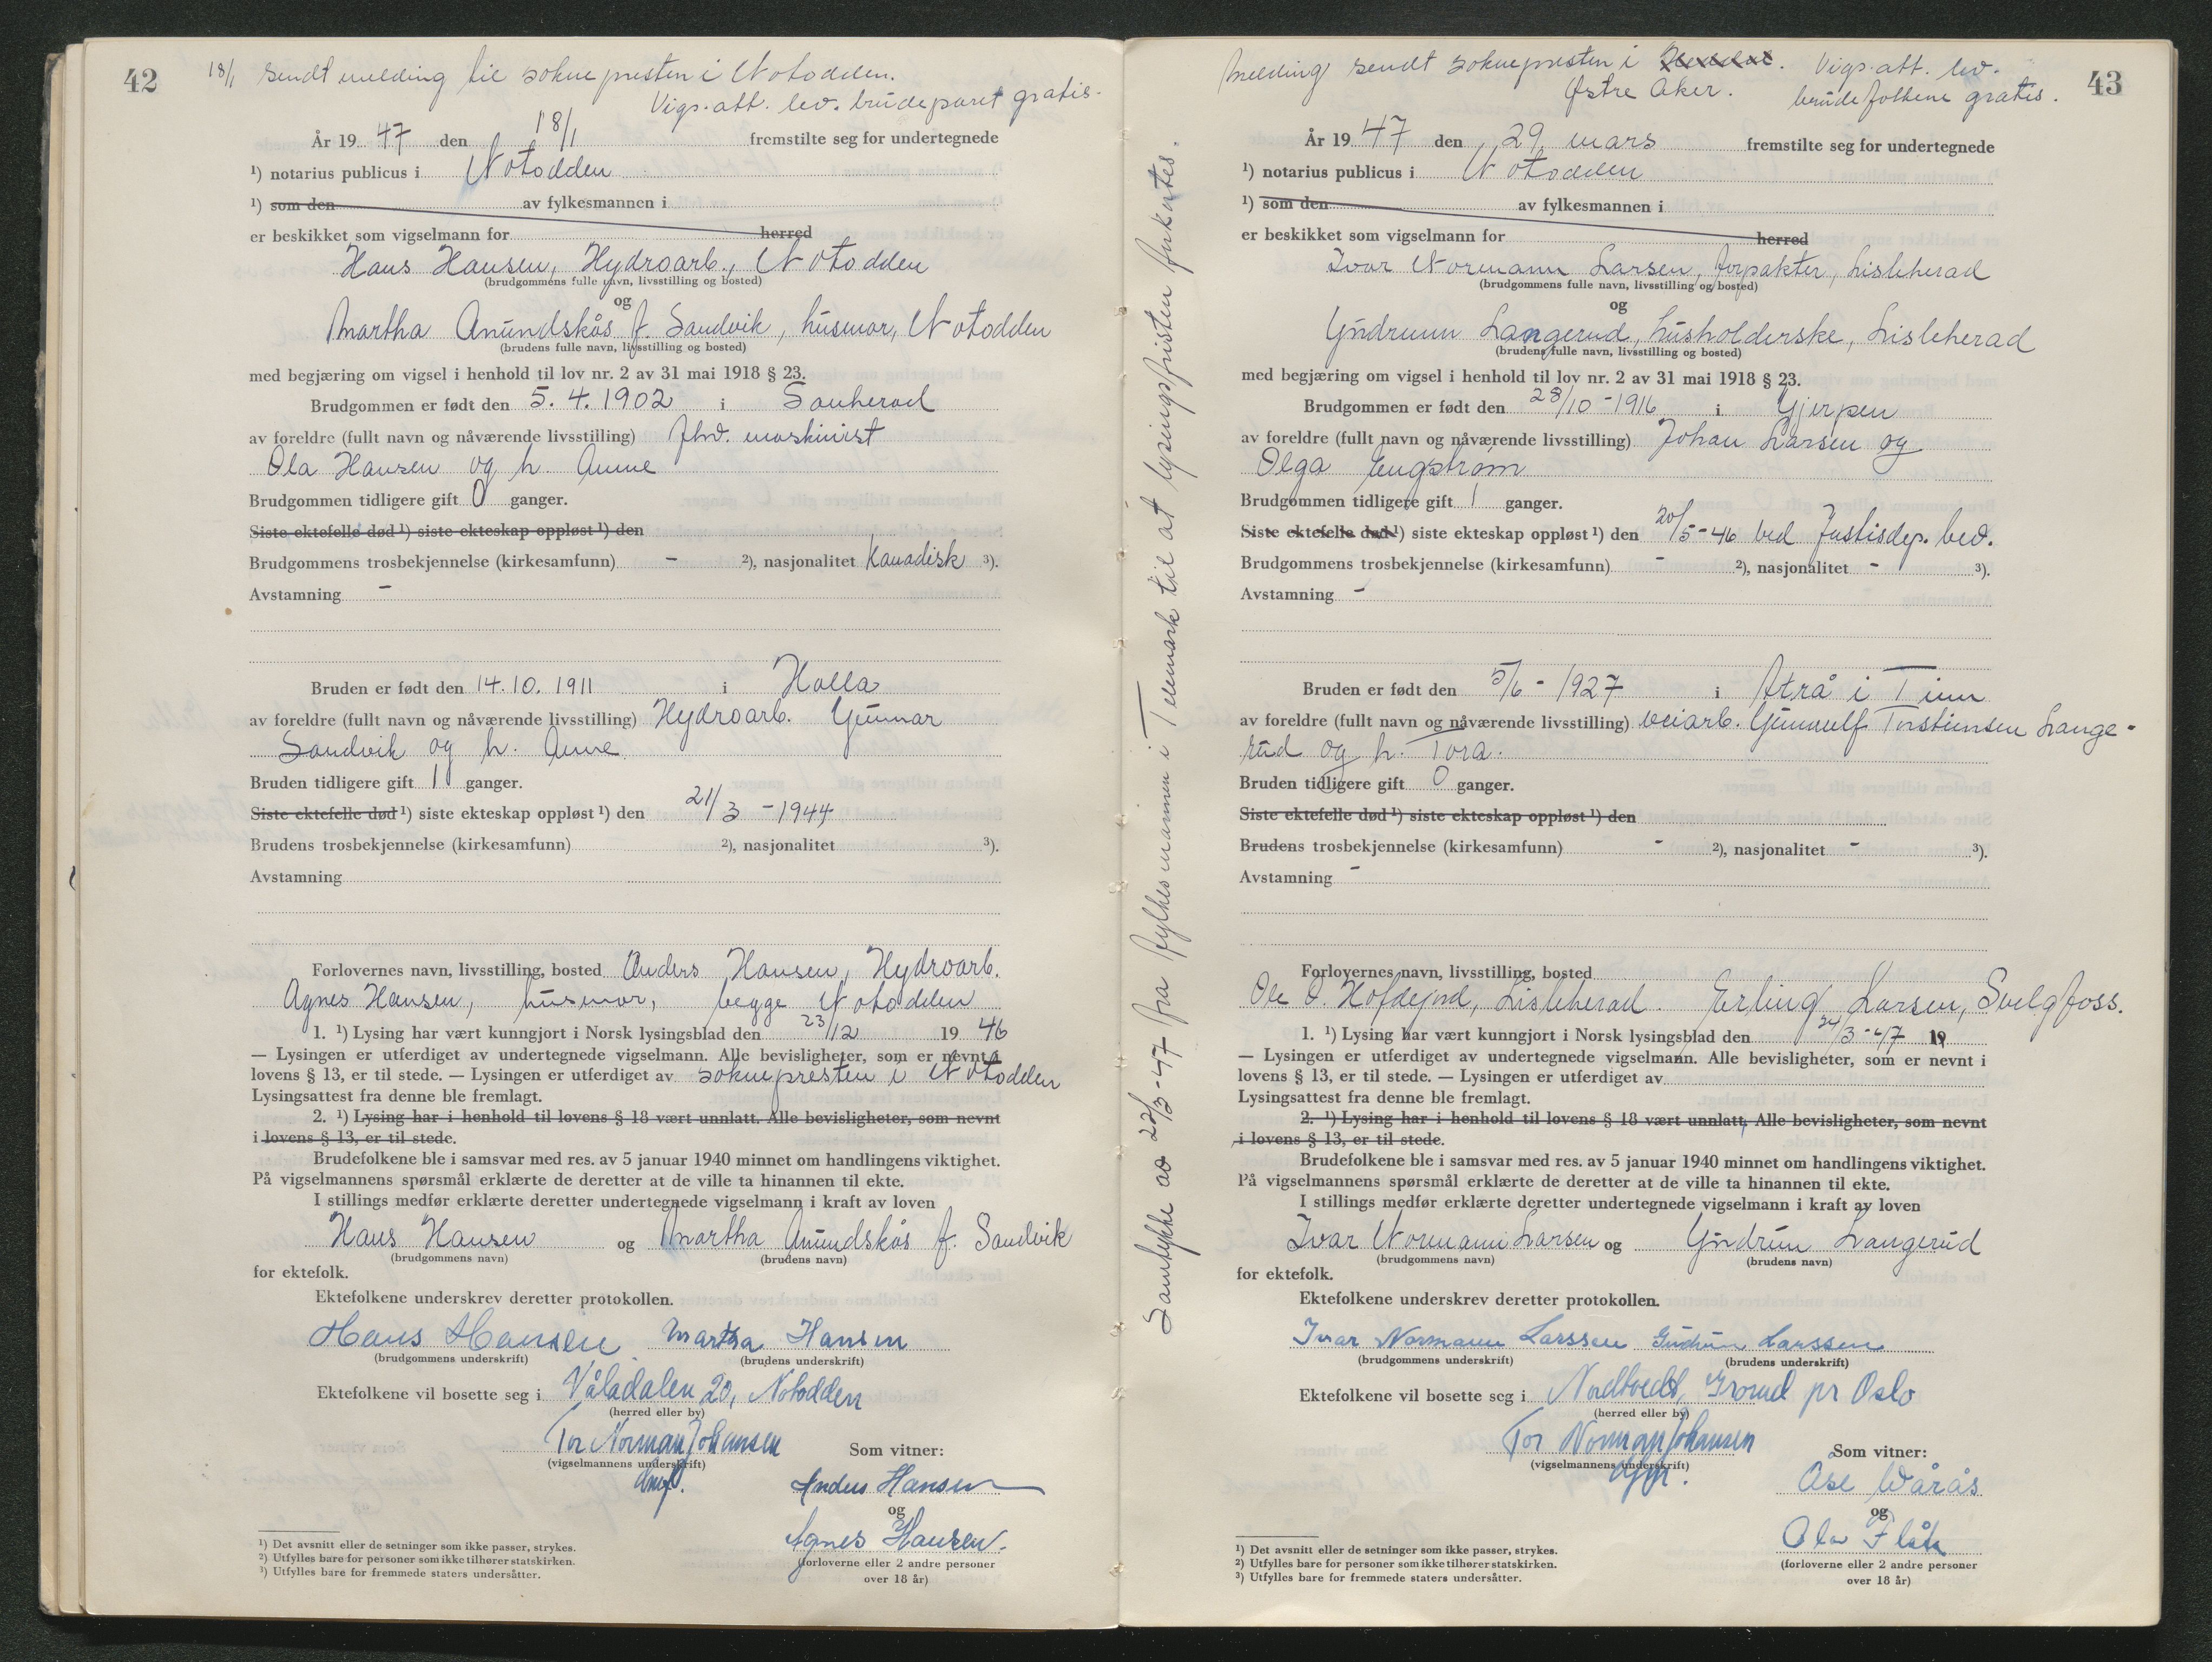 42
18/1 sendt melding til soknepresten i Notodden.
Vigs.att. lev. brudeparet gratis.
År 1947 den 18/1 fremstilte seg for undertegnede
¹) notarius publicus i Notodden
¹) som den av fylkesmannen i
er beskikket som vigselmann for herred
Hans Hansen, Hydroarb., Notodden
(brudgommens fulle navn, livsstilling og bosted)
og
Martha Anundskås f. Sandvik, husmor, Notodden
(brudens fulle navn, livsstilling og bosted)
med begjæring om vigsel i henhold til lov nr. 2 av 31 mai 1918 § 23.
Brudgommen er født den 5.4.1902 i Sauherad
av foreldre (fullt navn og nåværende livsstilling) fhv. maskinist
Ola Hansen og h. Anne
Brudgommen tidligere gift 0 ganger.
Siste ektefelle død ¹) siste ekteskap oppløst ¹) den
Brudgommens trosbekjennelse (kirkesamfunn) - ²), nasjonalitet Kanadisk ³).
Avstamning -
Bruden er født den 14.10.1911 i Holla
av foreldre (fullt navn og nåværende livsstilling) Hydroarb. Gunnar
Sandvik og h. Anne
Bruden tidligere gift 1 ganger.
Siste ektefelle død ¹) siste ekteskap oppløst ¹) den 21/3 - 1944
Brudens trosbekjennelse (kirkesamfunn) ²), nasjonalitet ³).
Avstamning
Forlovernes navn, livsstilling, bosted Anders Hansen, Hydroarb.
Agnes Hansen, husmor, begge Notodden
1. ¹) Lysing har vært kunngjort i Norsk lysingsblad den 23/12 1946
— Lysingen er utferdiget av undertegnede vigselmann. Alle bevisligheter, som er nevnt i
lovens § 13, er til stede. — Lysingen er utferdiget av soknepresten i Notodden
Lysingsattest fra denne ble fremlagt.
2. ¹) Lysing har i henhold til lovens § 18 vært unnlatt. Alle bevisligheter, som nevnt
i lovens § 13, er til stede.
Brudefolkene ble i samsvar med res. av 5 januar 1940 minnet om handlingens viktighet.
På vigselmannens spørsmål erklærte de deretter at de ville ta hinannen til ekte.
I stillings medfør erklærte deretter undertegnede vigselmann i kraft av loven
Hans Hansen og Martha Anundskås f. Sandvik
(brudgommens navn) (brudens navn)
for ektefolk.
Ektefolkene underskrev deretter protokollen.
Hans Hansen Martha Hansen
(brudgommens underskrift) (brudens underskrift)
Ektefolkene vil bosette seg i Våladalen 20, Notodden
(herred eller by)
Tor Norman Johansen Som vitner:
(vigselmannens underskrift)
Anders Hansen
og
Agnes Hansen.
(forloverne eller 2 andre personer
over 18 år)
¹) Det avsnitt eller de setninger som ikke passer, strykes.
²) Utfylles bare for personer som ikke tilhører statskirken.
³) Utfylles bare for fremmede staters undersåtter.
Samtykke av 22/3-47 fra fylkesmannen i Telemark til at lysingsfristen forkortes.
43
Melding sendt soknepresten i Heddal. Vigs.att. lev.
Østre Aker. brudefolkene gratis.
År 1947 den 29 mars fremstilte seg for undertegnede
¹) notarius publicus i Notodden
¹) som den av fylkesmannen i
er beskikket som vigselmann for herred
Ivar Normann Larsen, forpakter, Lisleherad
(brudgommens fulle navn, livsstilling og bosted)
og
Gudrunn Langerud, husholderske, Lisleherad
(brudens fulle navn, livsstilling og bosted)
med begjæring om vigsel i henhold til lov nr. 2 av 31 mai 1918 § 23.
Brudgommen er født den 28/10 - 1916 i Gjerpen
av foreldre (fullt navn og nåværende livsstilling) Johan Larsen og
Olga Engstrøm
Brudgommen tidligere gift 1 ganger.
Siste ektefelle død ¹) siste ekteskap oppløst ¹) den 20/5-46 ved Justisdep. bev.
Brudgommens trosbekjennelse (kirkesamfunn) - ²), nasjonalitet - ³).
Avstamning -
Bruden er født den 5/6 - 1927 i Atrå i Tinn
av foreldre (fullt navn og nåværende livsstilling) veiarb. Gunnulf Torsteinsen Lange-
rud og h. Tora.
Bruden tidligere gift 0 ganger.
Siste ektefelle død ¹) siste ekteskap oppløst ¹) den
Brudens trosbekjennelse (kirkesamfunn) - ²), nasjonalitet - ³).
Avstamning -
Forlovernes navn, livsstilling, bosted
Ole O. Hofdejord, Lisleherad. Erling Larsen, Svelgfoss.
1. ¹) Lysing har vært kunngjort i Norsk lysingsblad den 24/3-47 19
— Lysingen er utferdiget av undertegnede vigselmann. Alle bevisligheter, som er nevnt i
lovens § 13, er til stede. — Lysingen er utferdiget av
Lysingsattest fra denne ble fremlagt.
2. ¹) Lysing har i henhold til lovens § 18 vært unnlatt. Alle bevisligheter, som nevnt
i lovens § 13, er til stede.
Brudefolkene ble i samsvar med res. av 5 januar 1940 minnet om handlingens viktighet.
På vigselmannens spørsmål erklærte de deretter at de ville ta hinannen til ekte.
I stillings medfør erklærte deretter undertegnede vigselmann i kraft av loven
Ivar Normann Larsen og Gudrun Langerud
(brudgommens navn) (brudens navn)
for ektefolk.
Ektefolkene underskrev deretter protokollen.
Ivar Normann Larssen Gudrun Larssen
(brudgommens underskrift) (brudens underskrift)
Ektefolkene vil bosette seg i Nordtvedt, Grorud pr Oslo
(herred eller by)
Tor Norman Johansen Som vitner:
(vigselmannens underskrift)
Åse Wårås
og
Ola Flåta
(forloverne eller 2 andre personer
over 18 år)
¹) Det avsnitt eller de setninger som ikke passer, strykes.
²) Utfylles bare for personer som ikke tilhører statskirken.
³) Utfylles bare for fremmede staters undersåtter.